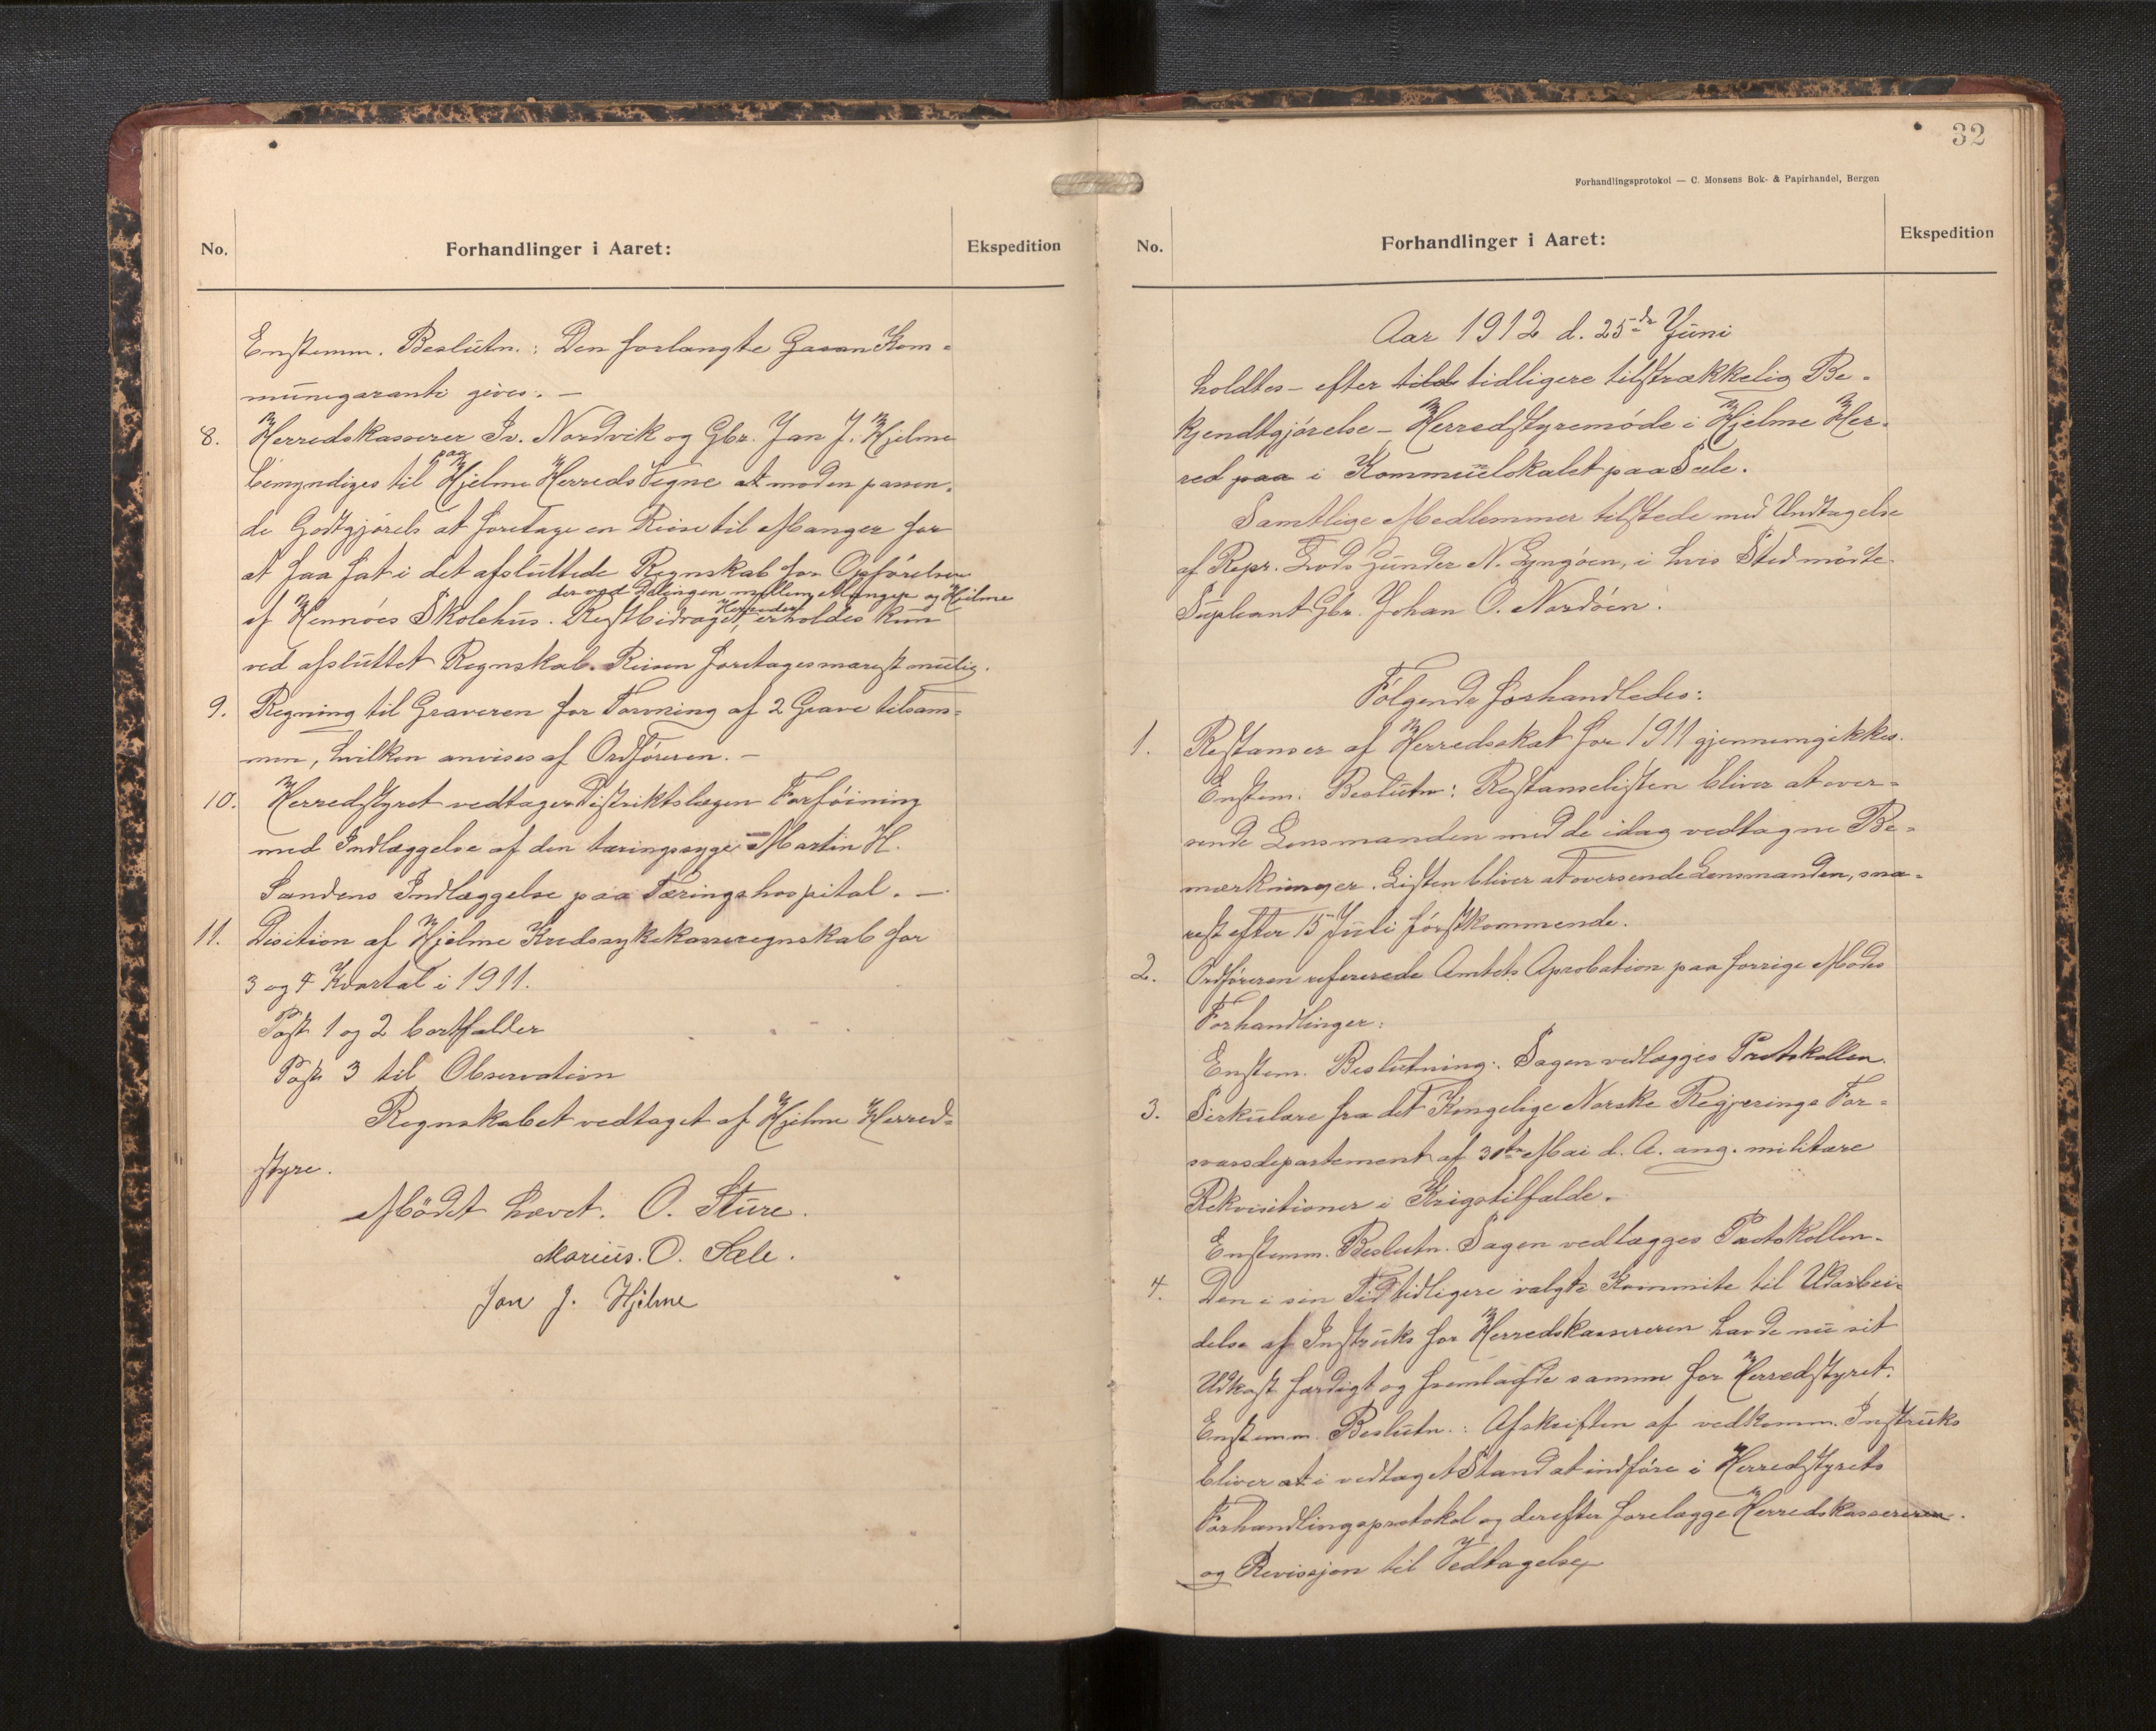 No.
Forhandlinger i Aaret:
Ekspedition
Enstemm. Beslutn.: Den forlangte Garan Kom-
munegaranti gives. —
8. Herredskasserer Iv. Nordvik og Gbr. Jan J. Hjelme
bemyndiges til paa Hjelme Herreds Vegne at moden passen-
de Godtgjørels at foretage en Reise til Manger for
at faa fat i det afsluttede Regnskab for Opførelsen
der ved Delingen mellem Manger og Hjelme
Herreder
af Hennøes Skolehus. Restbidraget, erholdes kun
ved afsluttet Regnskab. Reisen foretages snarest mulig.
9. Regning til Graveren for Tørming af 2 Grave tilsam-
men, hvilken anvises af Ordføreren. —
10. Herredstyret vedtager Distriktslægen Forføining
med Indlæggelse af den tæringssyge Martin H.
Sandens Indlæggelse paa Tæringshospital. —
11. Disition af Hjelme Kredssykekasseregnskab for
3 og 4 Kvartal i 1911.
Post 1 og 2 bortfalder
Post 3 til Observation
Regnskabet vedtaget af Hjelme Herred-
styre.
Mødet hævet. O. Sture.
Marius. O. Sæle.
Jan J. Hjelme
32
Forhandlingsprotokol — C. Monsens Bok- & Papirhandel, Bergen
No.
Forhandlinger i Aaret:
Ekspedition
Aar 1912 d. 25de Juni
holdtes – efter tilde tidligere tilstrækkelig Be-
kjendtgjørelse – Herredstyremøde i Hjelme Her-
red paa i Kommuelokalet paa Sæle.
Samtlige Medlemmer tilstede med Undtagelse
af Repr. Lods Gunder N. Lyngøen, i hvis Sted mødte
Supleant Gbr. Johan O. Nordøen.
Følgende forhandledes:
1. Restanser af Herredsskat for 1911 gjennemgikkes.
Enstem. Beslutn: Restanselisten bliver at over-
sende Lensmanden med de idag vedtagne Be-
mærkninger. Listen bliver at oversende Lensmanden, sna-
rest efter 15 Juli førstkommende.
2. Ordføreren refererede Amtets Aprobation paa forrige Mødes
Forhandlinger:
Enstem. Beslutning: Sagen vedlægges Protokollen.
3. Sirkulære fra det Kongelige Norske Regjerings For-
svarsdepartement af 30te Mai d. A. ang. militære
Rekvisitioner i Krigstilfælde.
Enstemm. Beslutn. Sagen vedlægges Protokollen.
4. Den i sin Tid tidligere valgte Kommite til Udarbei-
delse af Instruks for Herredskassereren havde nu sit
Udkast færdigt og fremlagde samme for Herredstyret.
Enstemm. Beslutn.: Afskriften af vedkomm. Instruks
bliver at i vedtaget Stand at indføre i Herredstyrets
Forhandlingsprotokol og derefter forelægge Herredskassereren.
og Revisjon til Vedtagelse